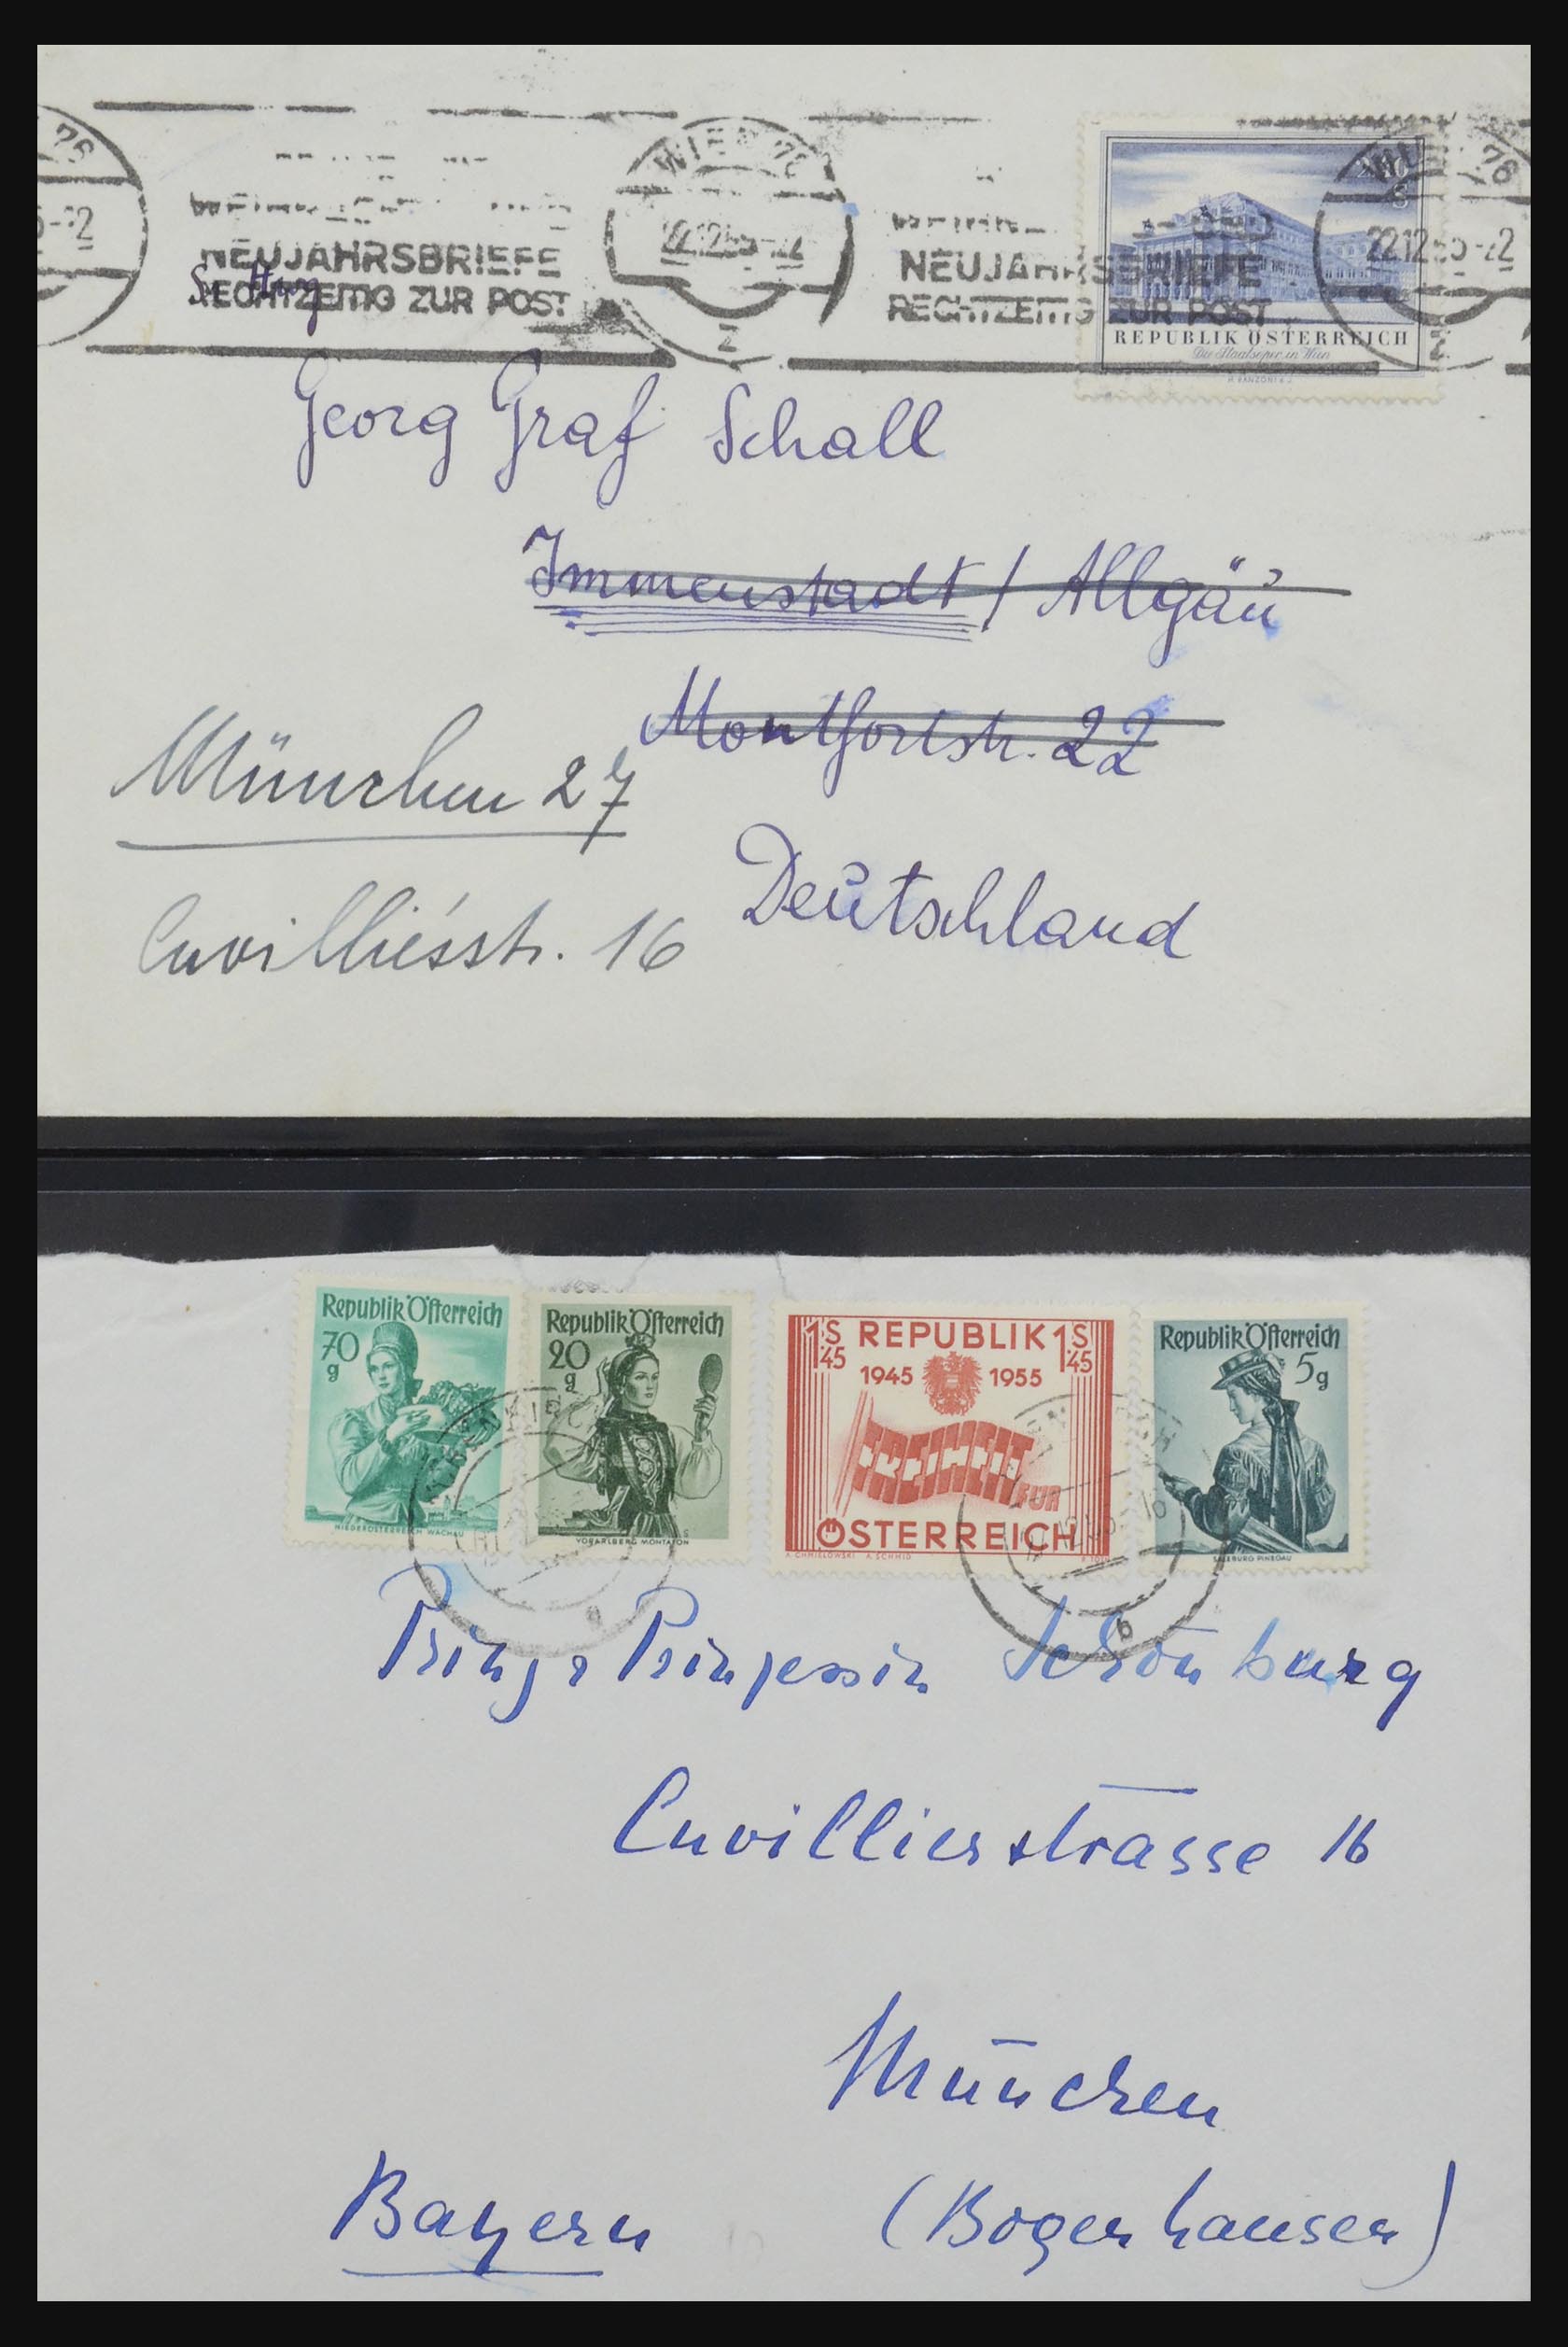 WIEN 76
NEUJAHRSBRIEFE
RECHTZEITIG ZUR POST
22.12.55-22
2
NEUJAHRSBRIEFE
RECHTZEITIG ZUR POST
WIEN 76
22.12.55-22
2
S
REPUBLIK ÖSTERREICH
Die Staatsoper in Wien
Georg Graf Schall
Immenstadt / Allgäu
Montfortstr. 22
München 27
Deutschland
Cuvilliésstr. 16
Republik Österreich
70
g
NIEDERÖSTERREICH WACHAU
Republik Österreich
20
g
VORARLBERG MONTAFON
1S 45 REPUBLIK 1S 45
1945 1955
FREIHEIT
FÜR
ÖSTERREICH
A. CHMIELOWSKI A. SCHMID
Republik Österreich
5g
SALZBURG PINZGAU
b
Prinz Prinzessin Schönburg
Cuvilliesstrasse 16
München
Bayern (Bogenhausen)